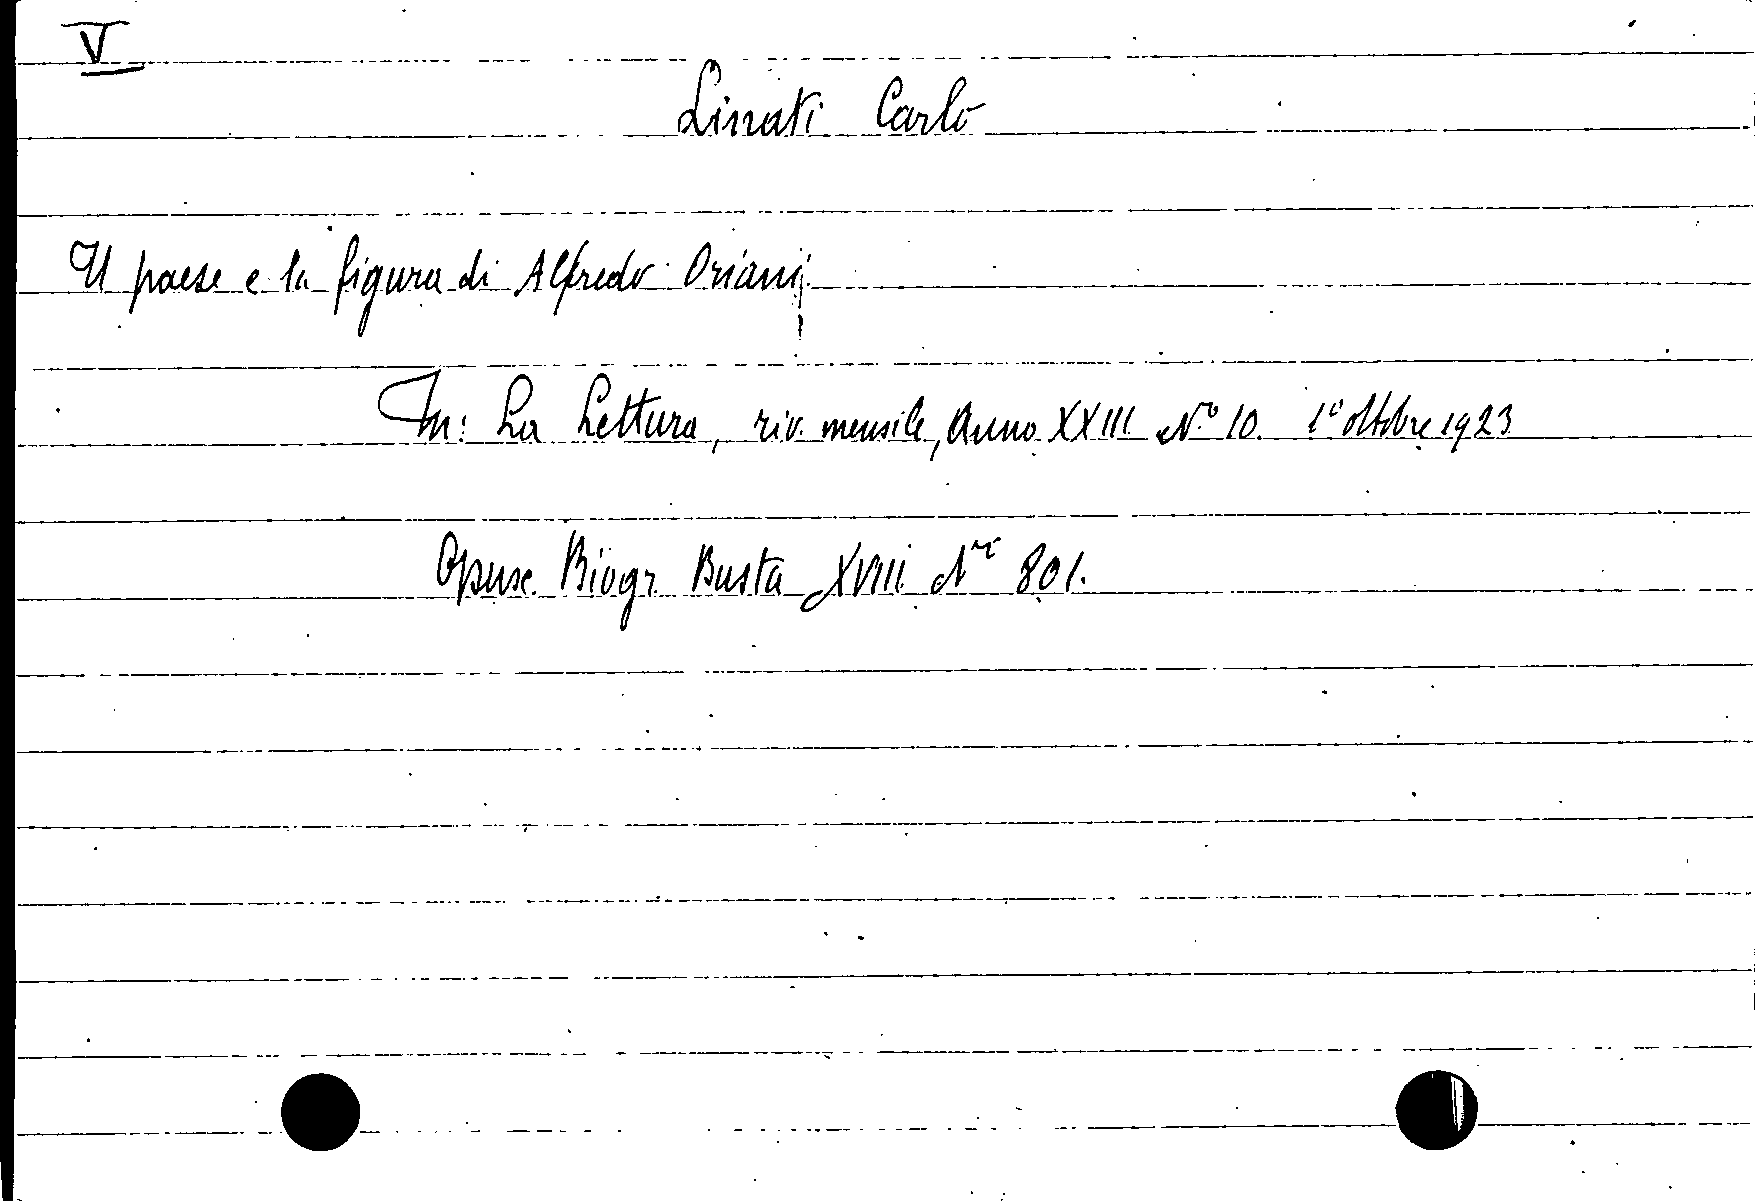 V
Linati Carlo
Il paese e la figura di Alfredo Oriani
In: La Lettura, riv. mensile, Anno XXIII N.o 10. 1o ottobre 1923
Opusc. Biogr. Busta XVIII Nr 801.